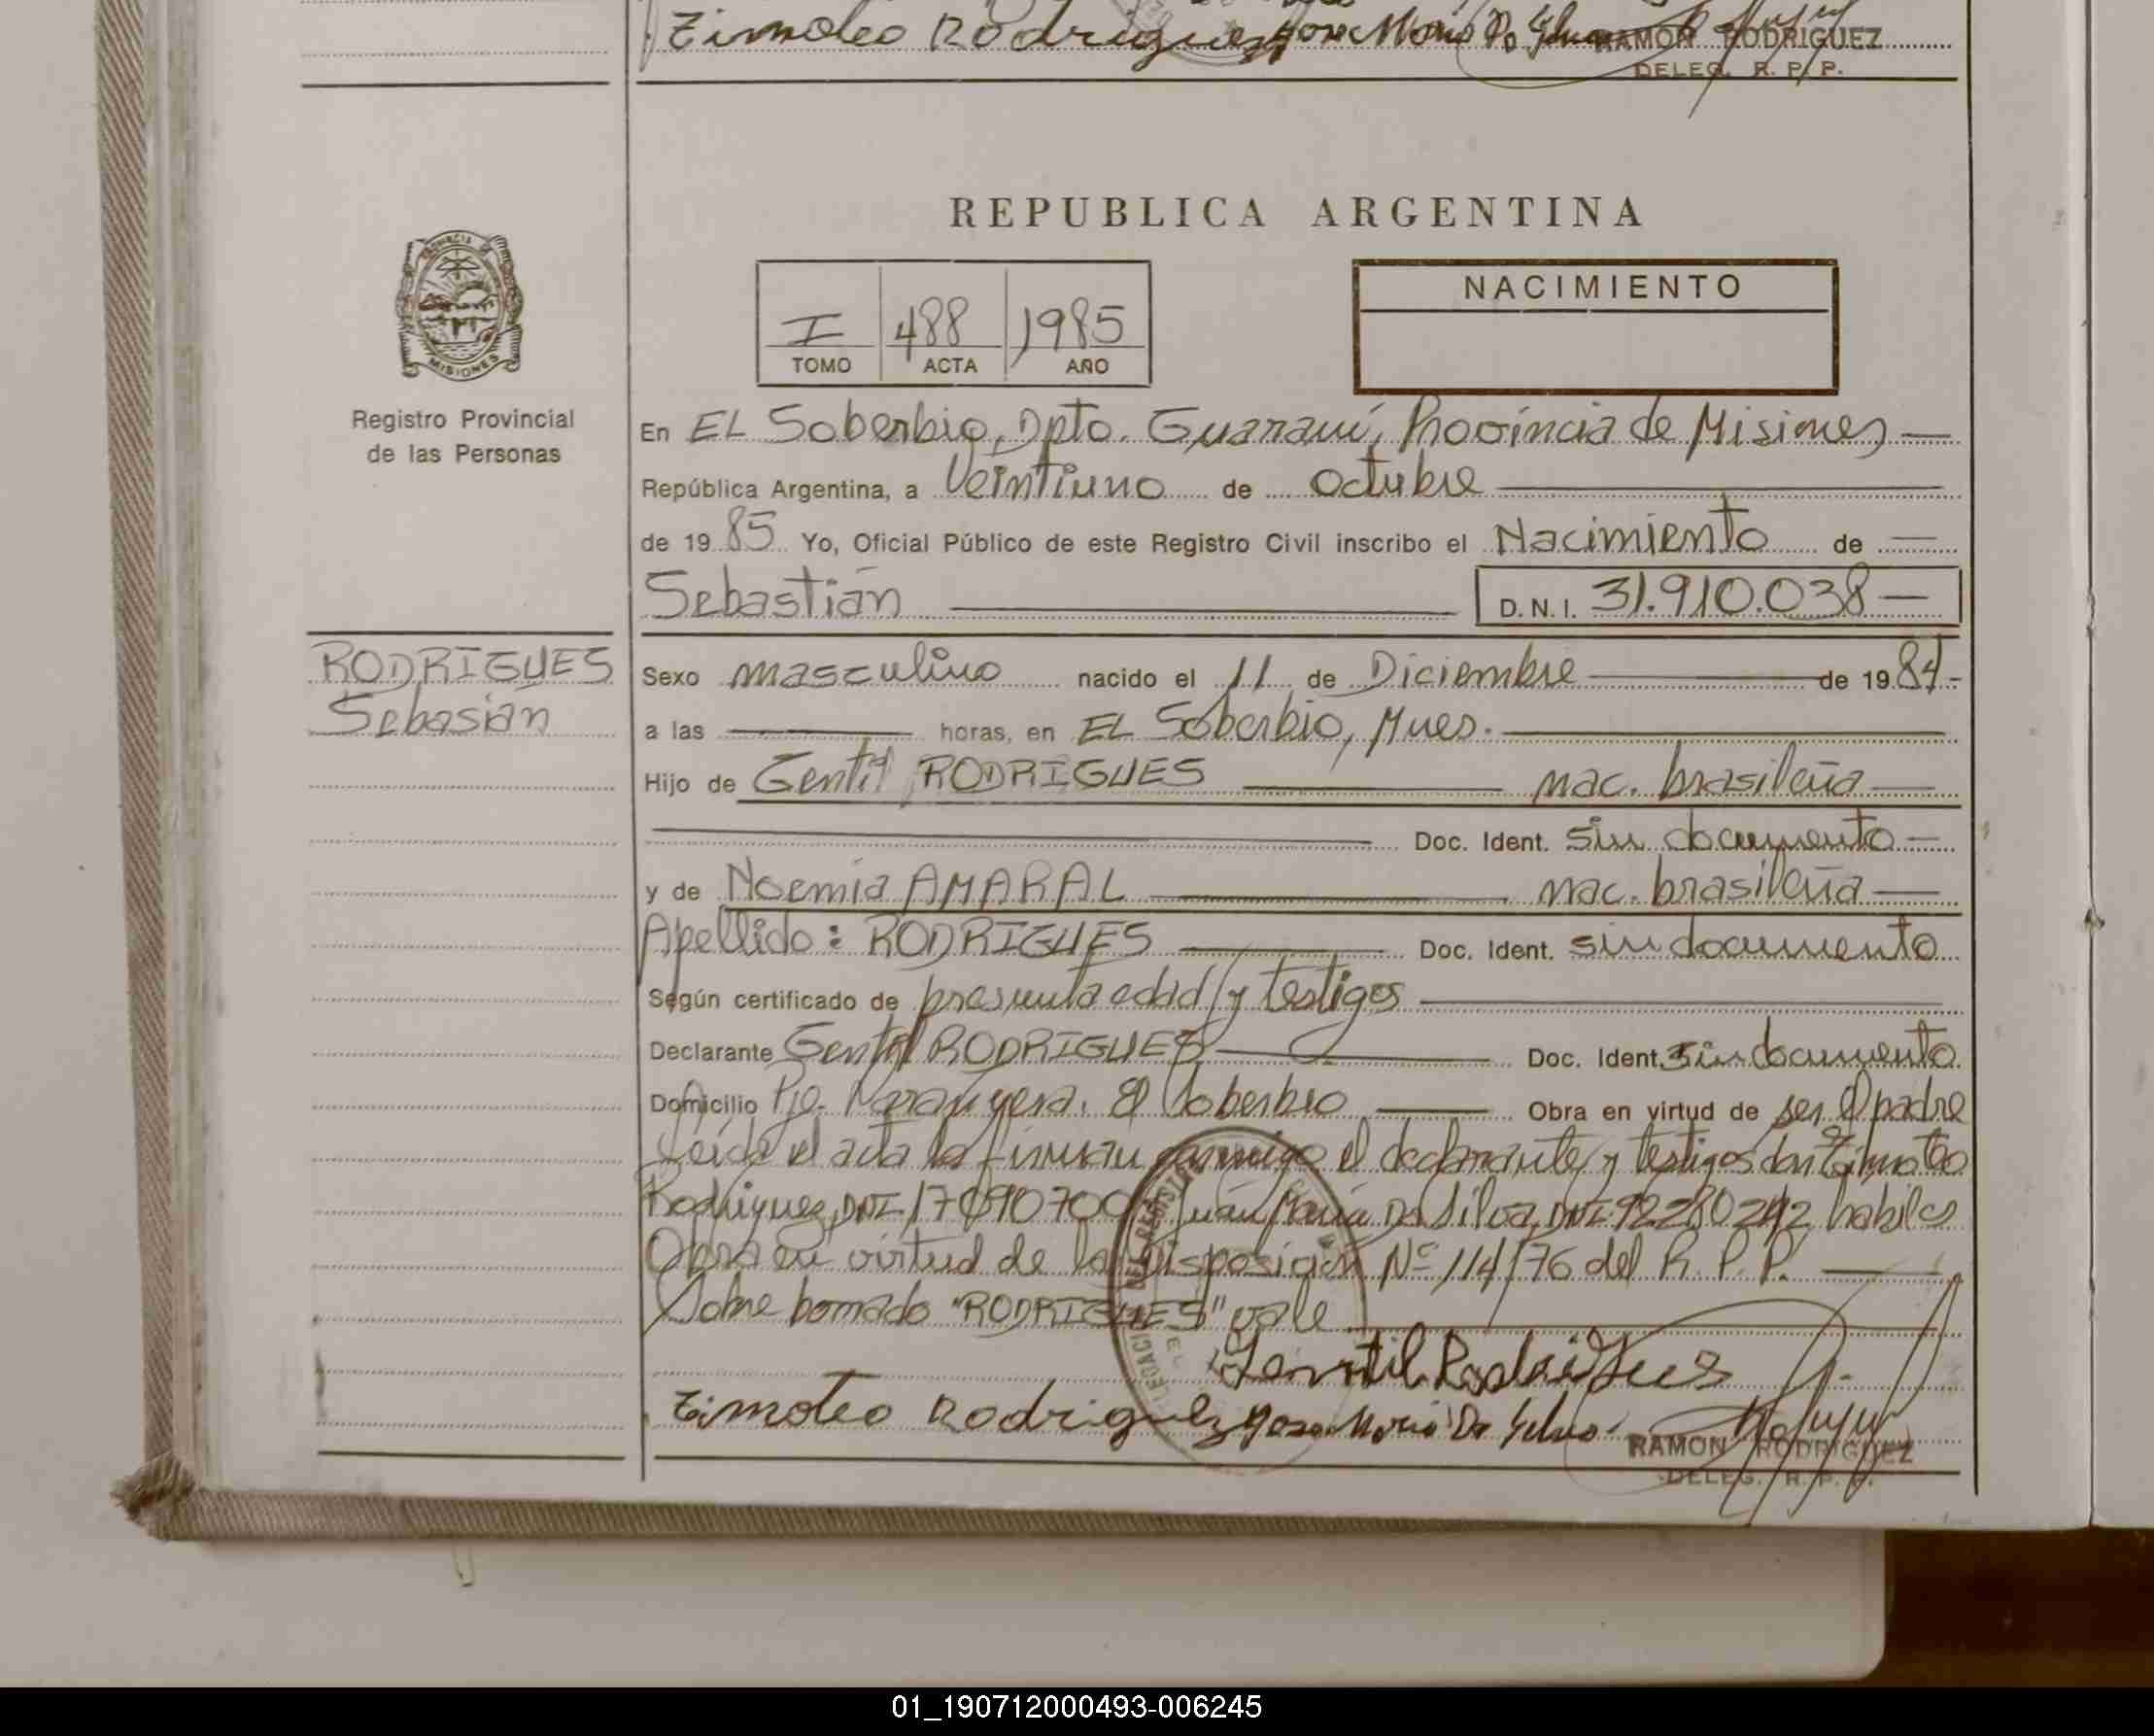 Timoteo Rodriguez Jose Maria Da Silva RAMON RODRIGUEZ
DELEG. R. P. P.
REPUBLICA ARGENTINA
PROVINCIA DE
MISIONES
Registro Provincial
de las Personas
I 488 1985
TOMO ACTA AÑO
NACIMIENTO
En EL Soberbio, Dpto. Guaraní, Provincia de Misiones —
República Argentina, a Veintiuno de Octubre
de 19 85 Yo, Oficial Público de este Registro Civil inscribo el Nacimiento de —
Sebastián D.N.I. 31.910.038 —
RODRIGUES
Sebasián
Sexo masculino nacido el 11 de Diciembre de 19 84 -
a las — horas, en EL Soberbio, Mnes.
Hijo de Gentil RODRIGUES nac. brasileña —
Doc. Ident. sin documento —
y de Noemia AMARAL nac. brasileña —
Apellido: RODRIGUES Doc. Ident. sin documento
Según certificado de presunta edad y testigos
Declarante Gentil RODRIGUES Doc. Ident. sin documento
Domicilio Pje. El Soberbio Obra en virtud de ser el padre
Leída el acta la firman conmigo el declarante y testigos don Timoteo
Rodriguez, DNI 17090700 Juan Maria Da Silva, DNI 92280242 habiles
Obra en virtud de la Disposición Nº 114/76 del R. P. P. —
Sobre borrado "RODRIGUES" vale
Gentil Rodrigues
Timoteo Rodriguez Jose Maria Da Silva
RAMON RODRIGUEZ
DELEG. R. P. P.
01_190712000493-006245